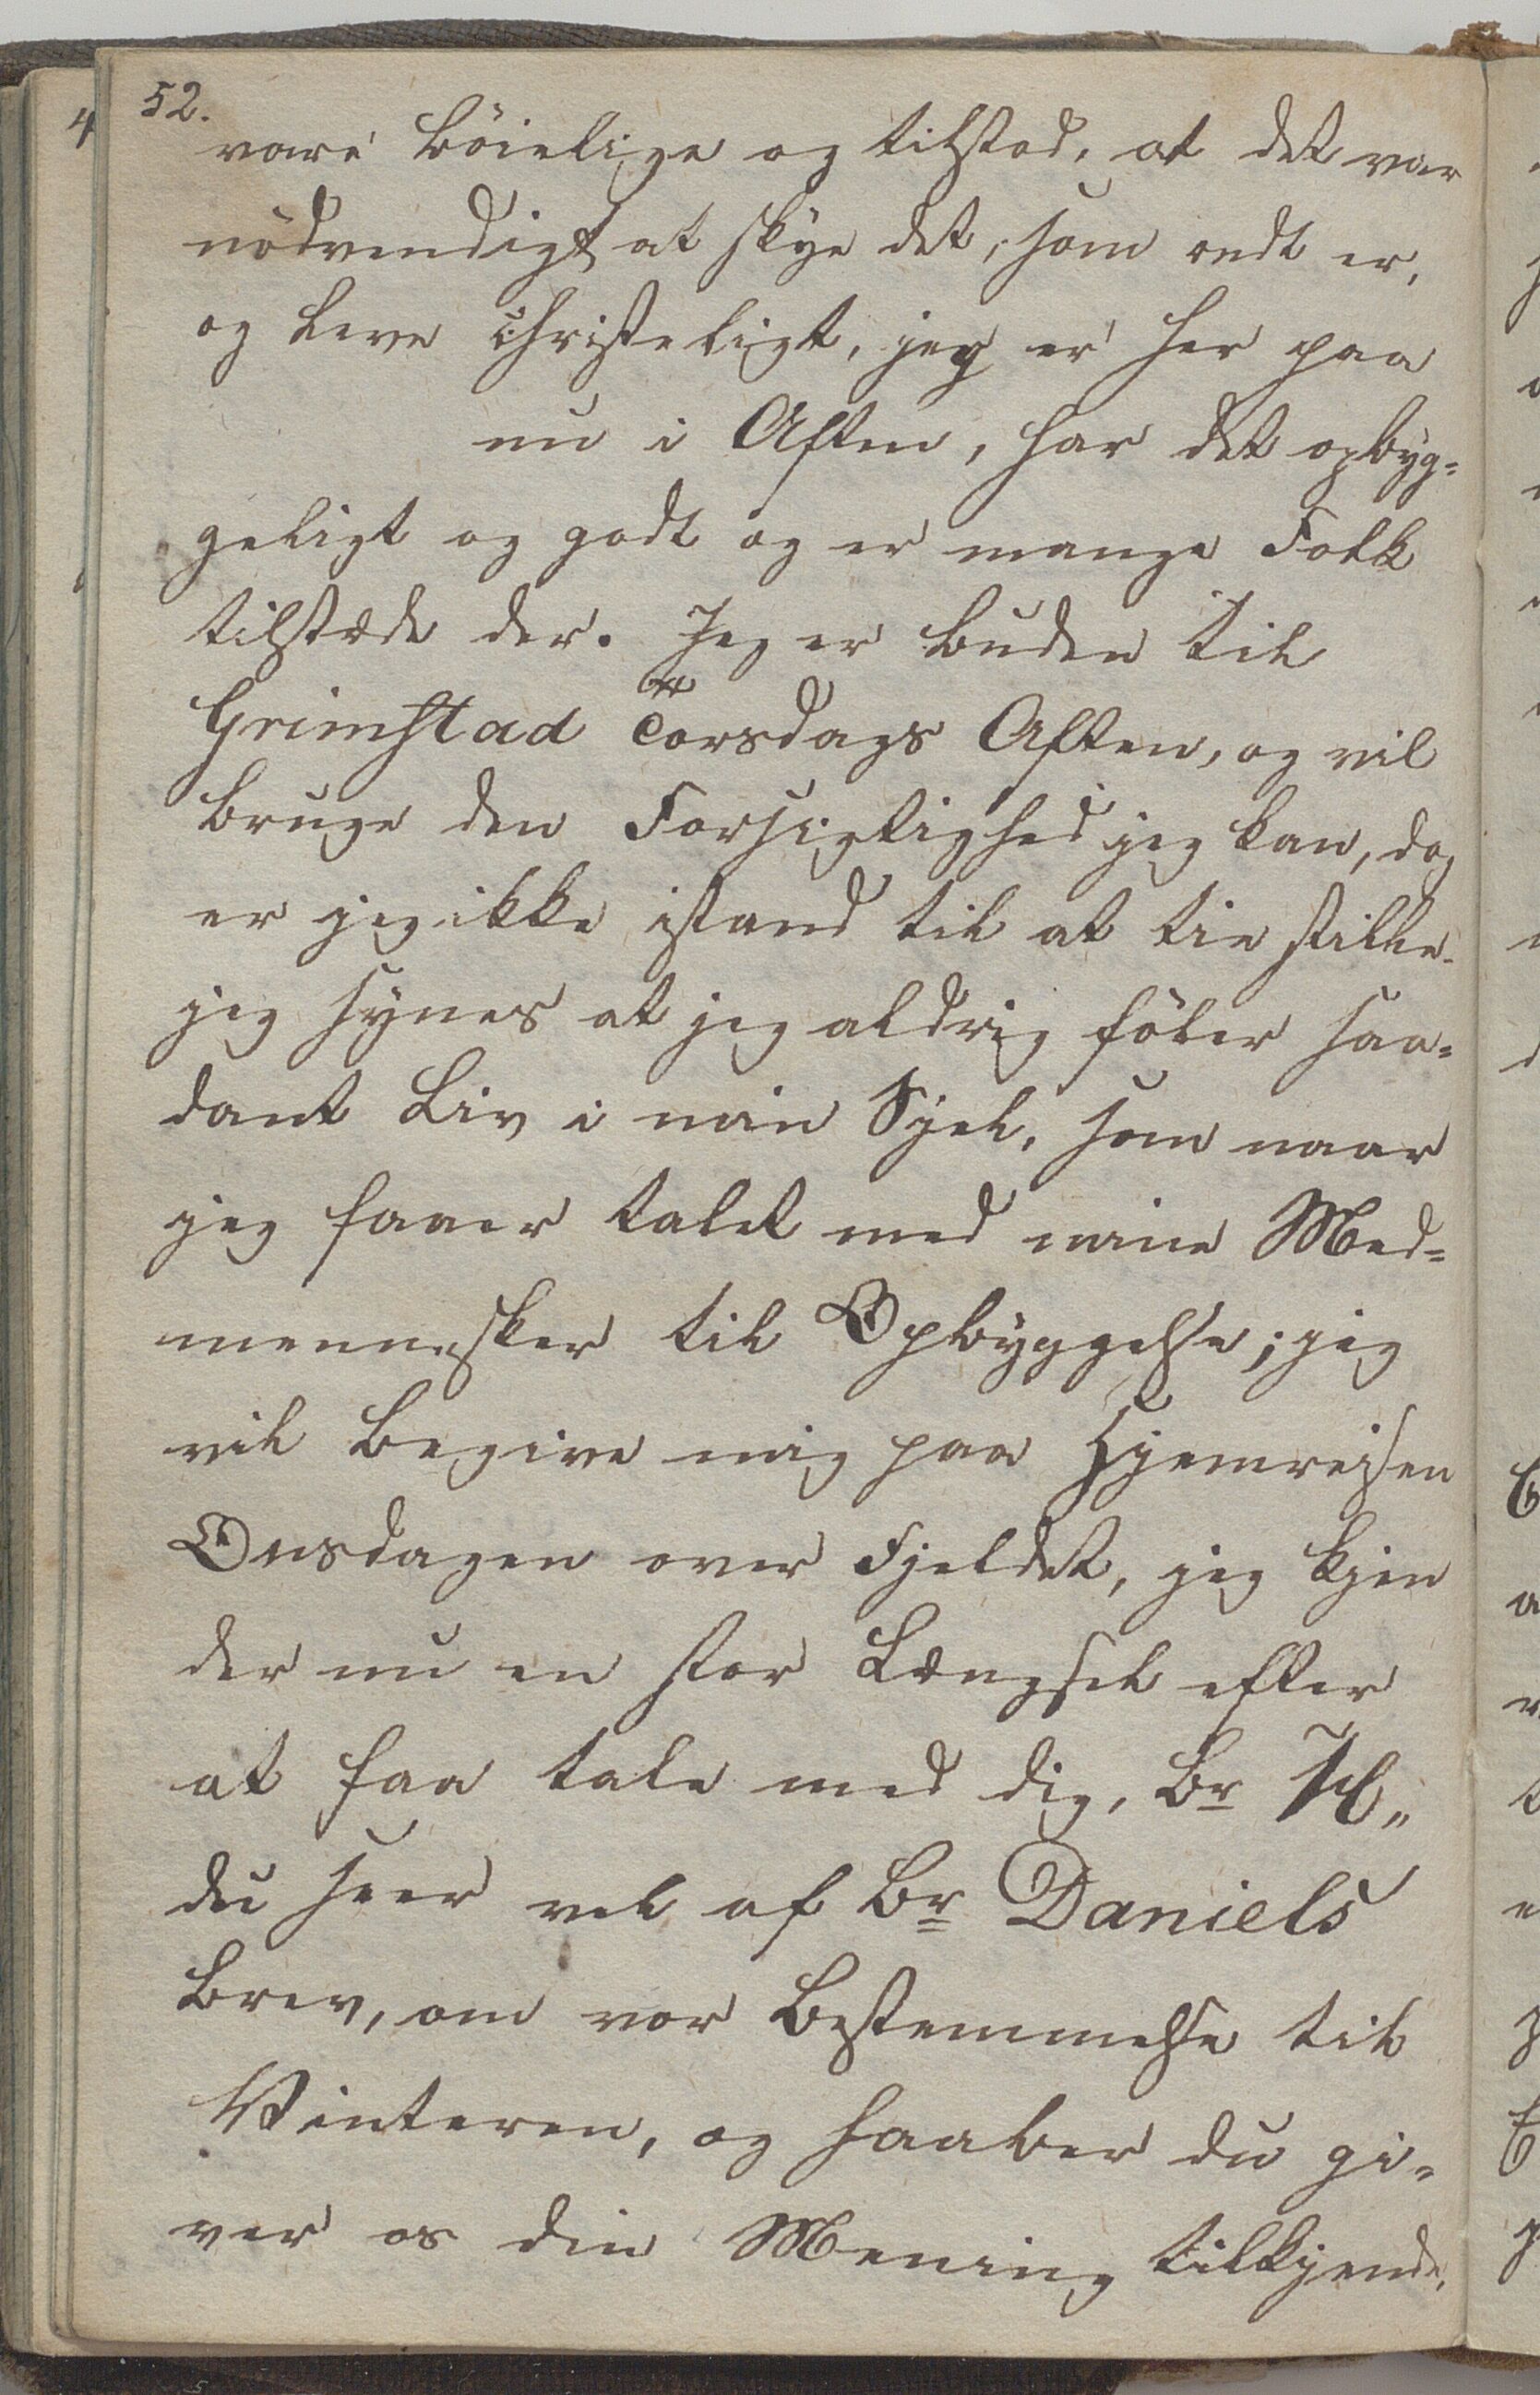 52.
vare böielige og tilstod, at det var
nödvendigt at skye det, som ondt er,
og leve christeligt, jeg er her paa
nu i Aften, har det opbyg-
geligt og godt og er mange Folk
tilstæde der. Jeg er buden til
Grimstad Torsdags Aften, og vil
bruge den Forsigtighed jeg kan, dog
er jeg ikke istand til at tie stille.
jeg synes at jeg aldrig föler saa-
dant Liv i min Sjel, som naar
jeg faaer talet med mine Med-
mennesker til Opbyggelse; jeg
vil begive mig paa Hjemreisen
Onsdagen over Fjeldet, jeg kjen
der nu en stor Længsel efter
at faa tale med dig, Br H„
du seer vel af Br Daniels
Brev, om vor Bestemmelse til
Vinteren, og haaber du gi-
ver os din Mening tilkjende,